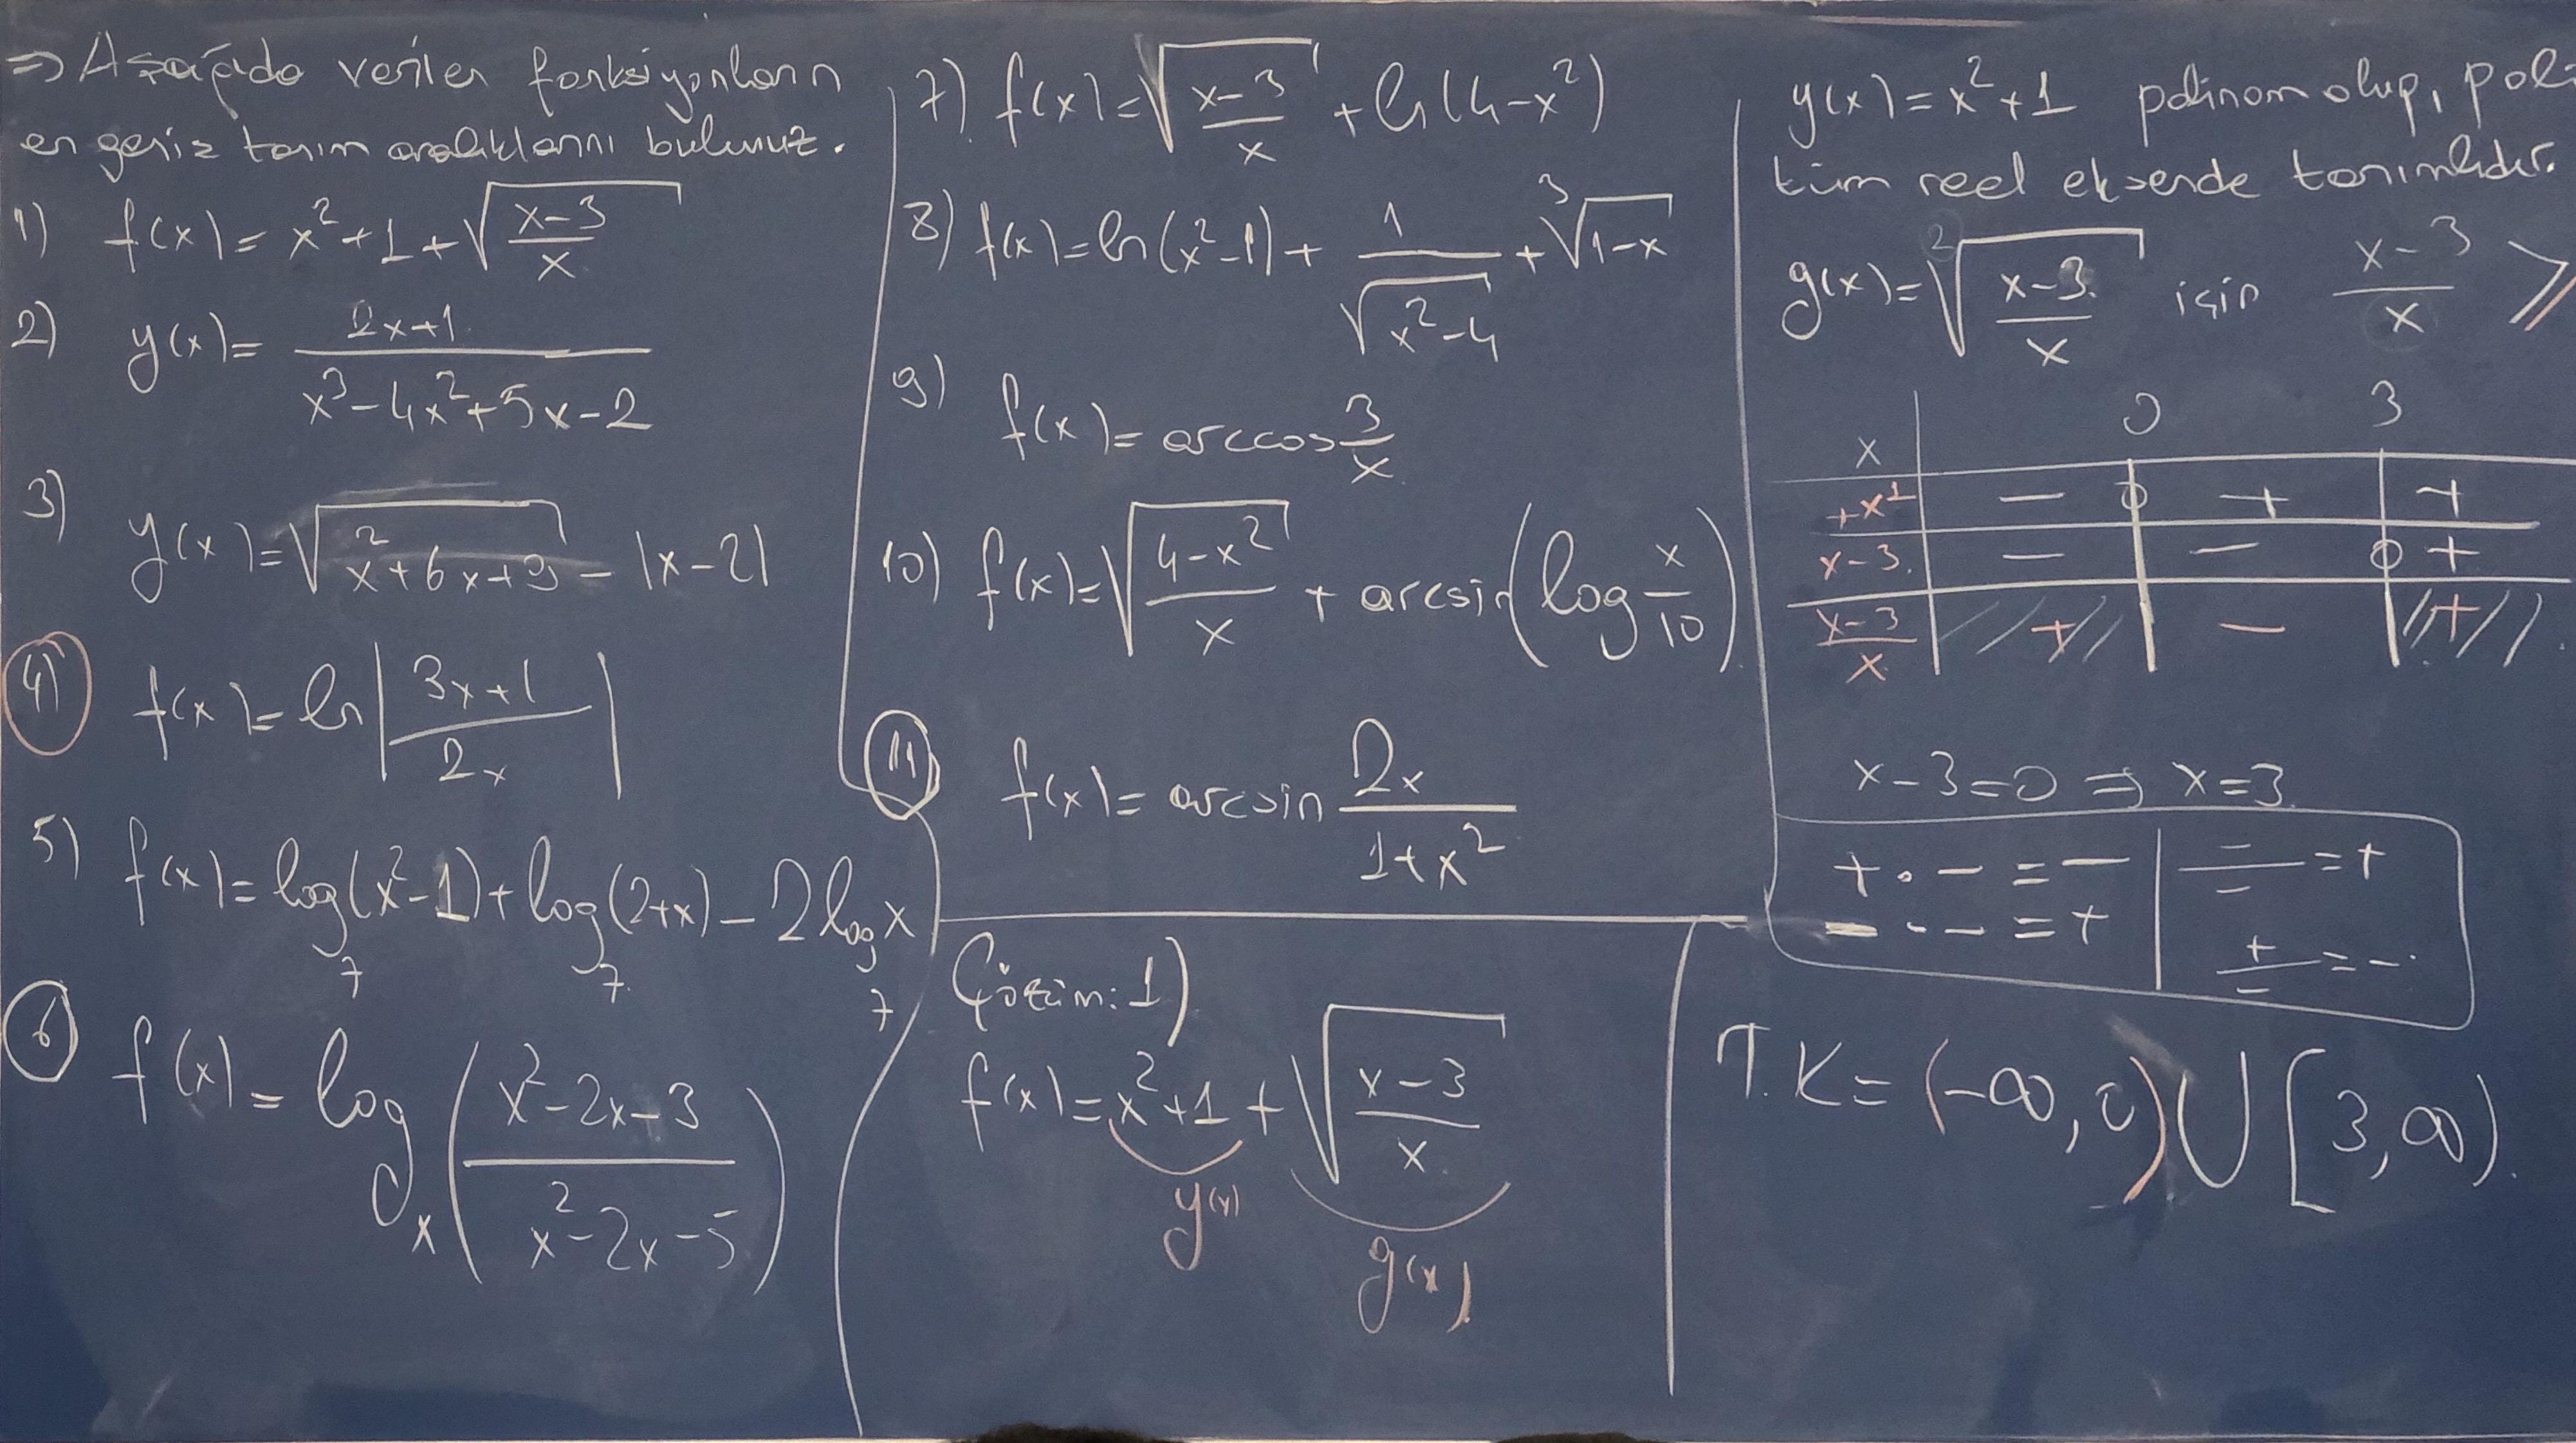 ⇒ Aşağıda verilen fonksiyonların
en geniş tanım aralıklarını bulunuz.
1) f(x) = x² + 1 + √((x-3)/x)
2) y(x) = (2x+1)/(x³-4x²+5x-2)
3) y(x) = √(x²+6x+9) - |x-2|
4) f(x) = ln|(3x+1)/(2x)|
5) f(x) = log₇(x²-1) + log₇(2+x) - 2log₇x
6 f(x) = logₓ((x²-2x-3)/(x²-2x-5))
7) f(x) = √((x-3)/x) + ln(4-x²)
8) f(x) = ln(x²-1) + 1/√(x²-4) + ³√(1-x)
9) f(x) = arccos 3/x
10) f(x) = √((4-x²)/x) + arcsin(log x/10)
11 f(x) = arcsin 2x/(1+x²)
Çözüm: 1)
f(x) = x²+1 + √((x-3)/x)
y(x) g(x)
y(x) = x²+1 polinom olup, poli
tüm reel eksende tanımlıdır.
g(x) = ²√((x-3)/x) için (x-3)/x ≥
x 0 3
+x¹ - 0 + +
x-3 - - 0 +
(x-3)/x + - +
x-3=0 ⇒ x=3
+ . - = - | -/- = +
- . - = + | +/- = -
T.K = (-∞, 0) ∪ [3, ∞).